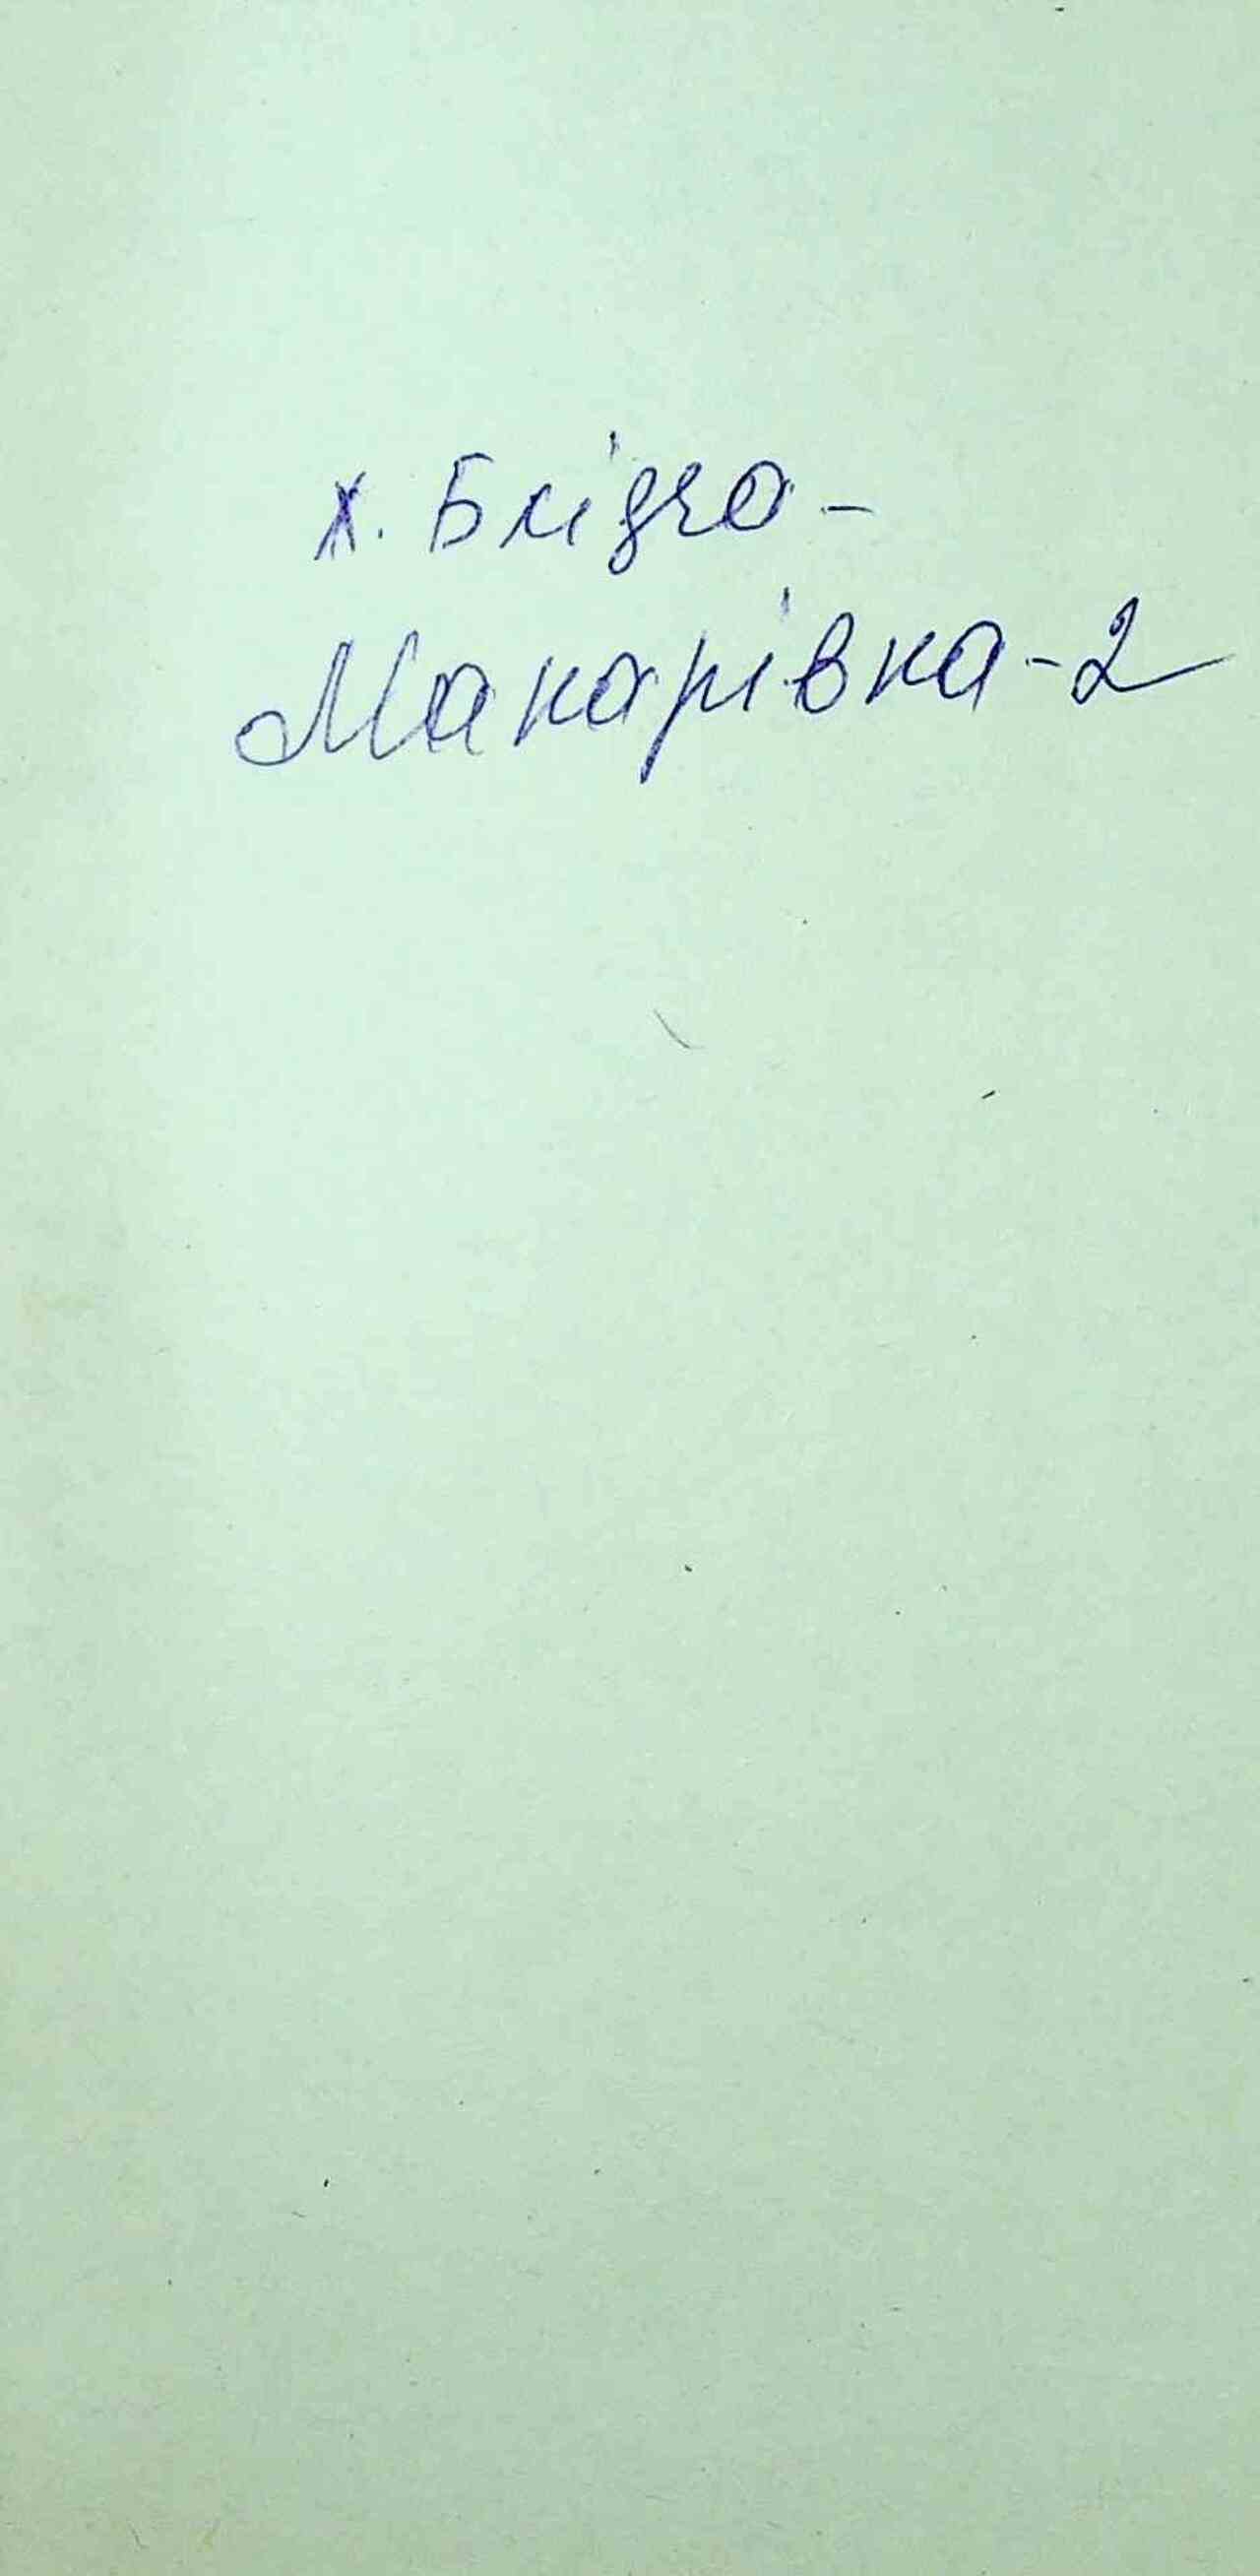 х. Блідча-
Макарівка-2